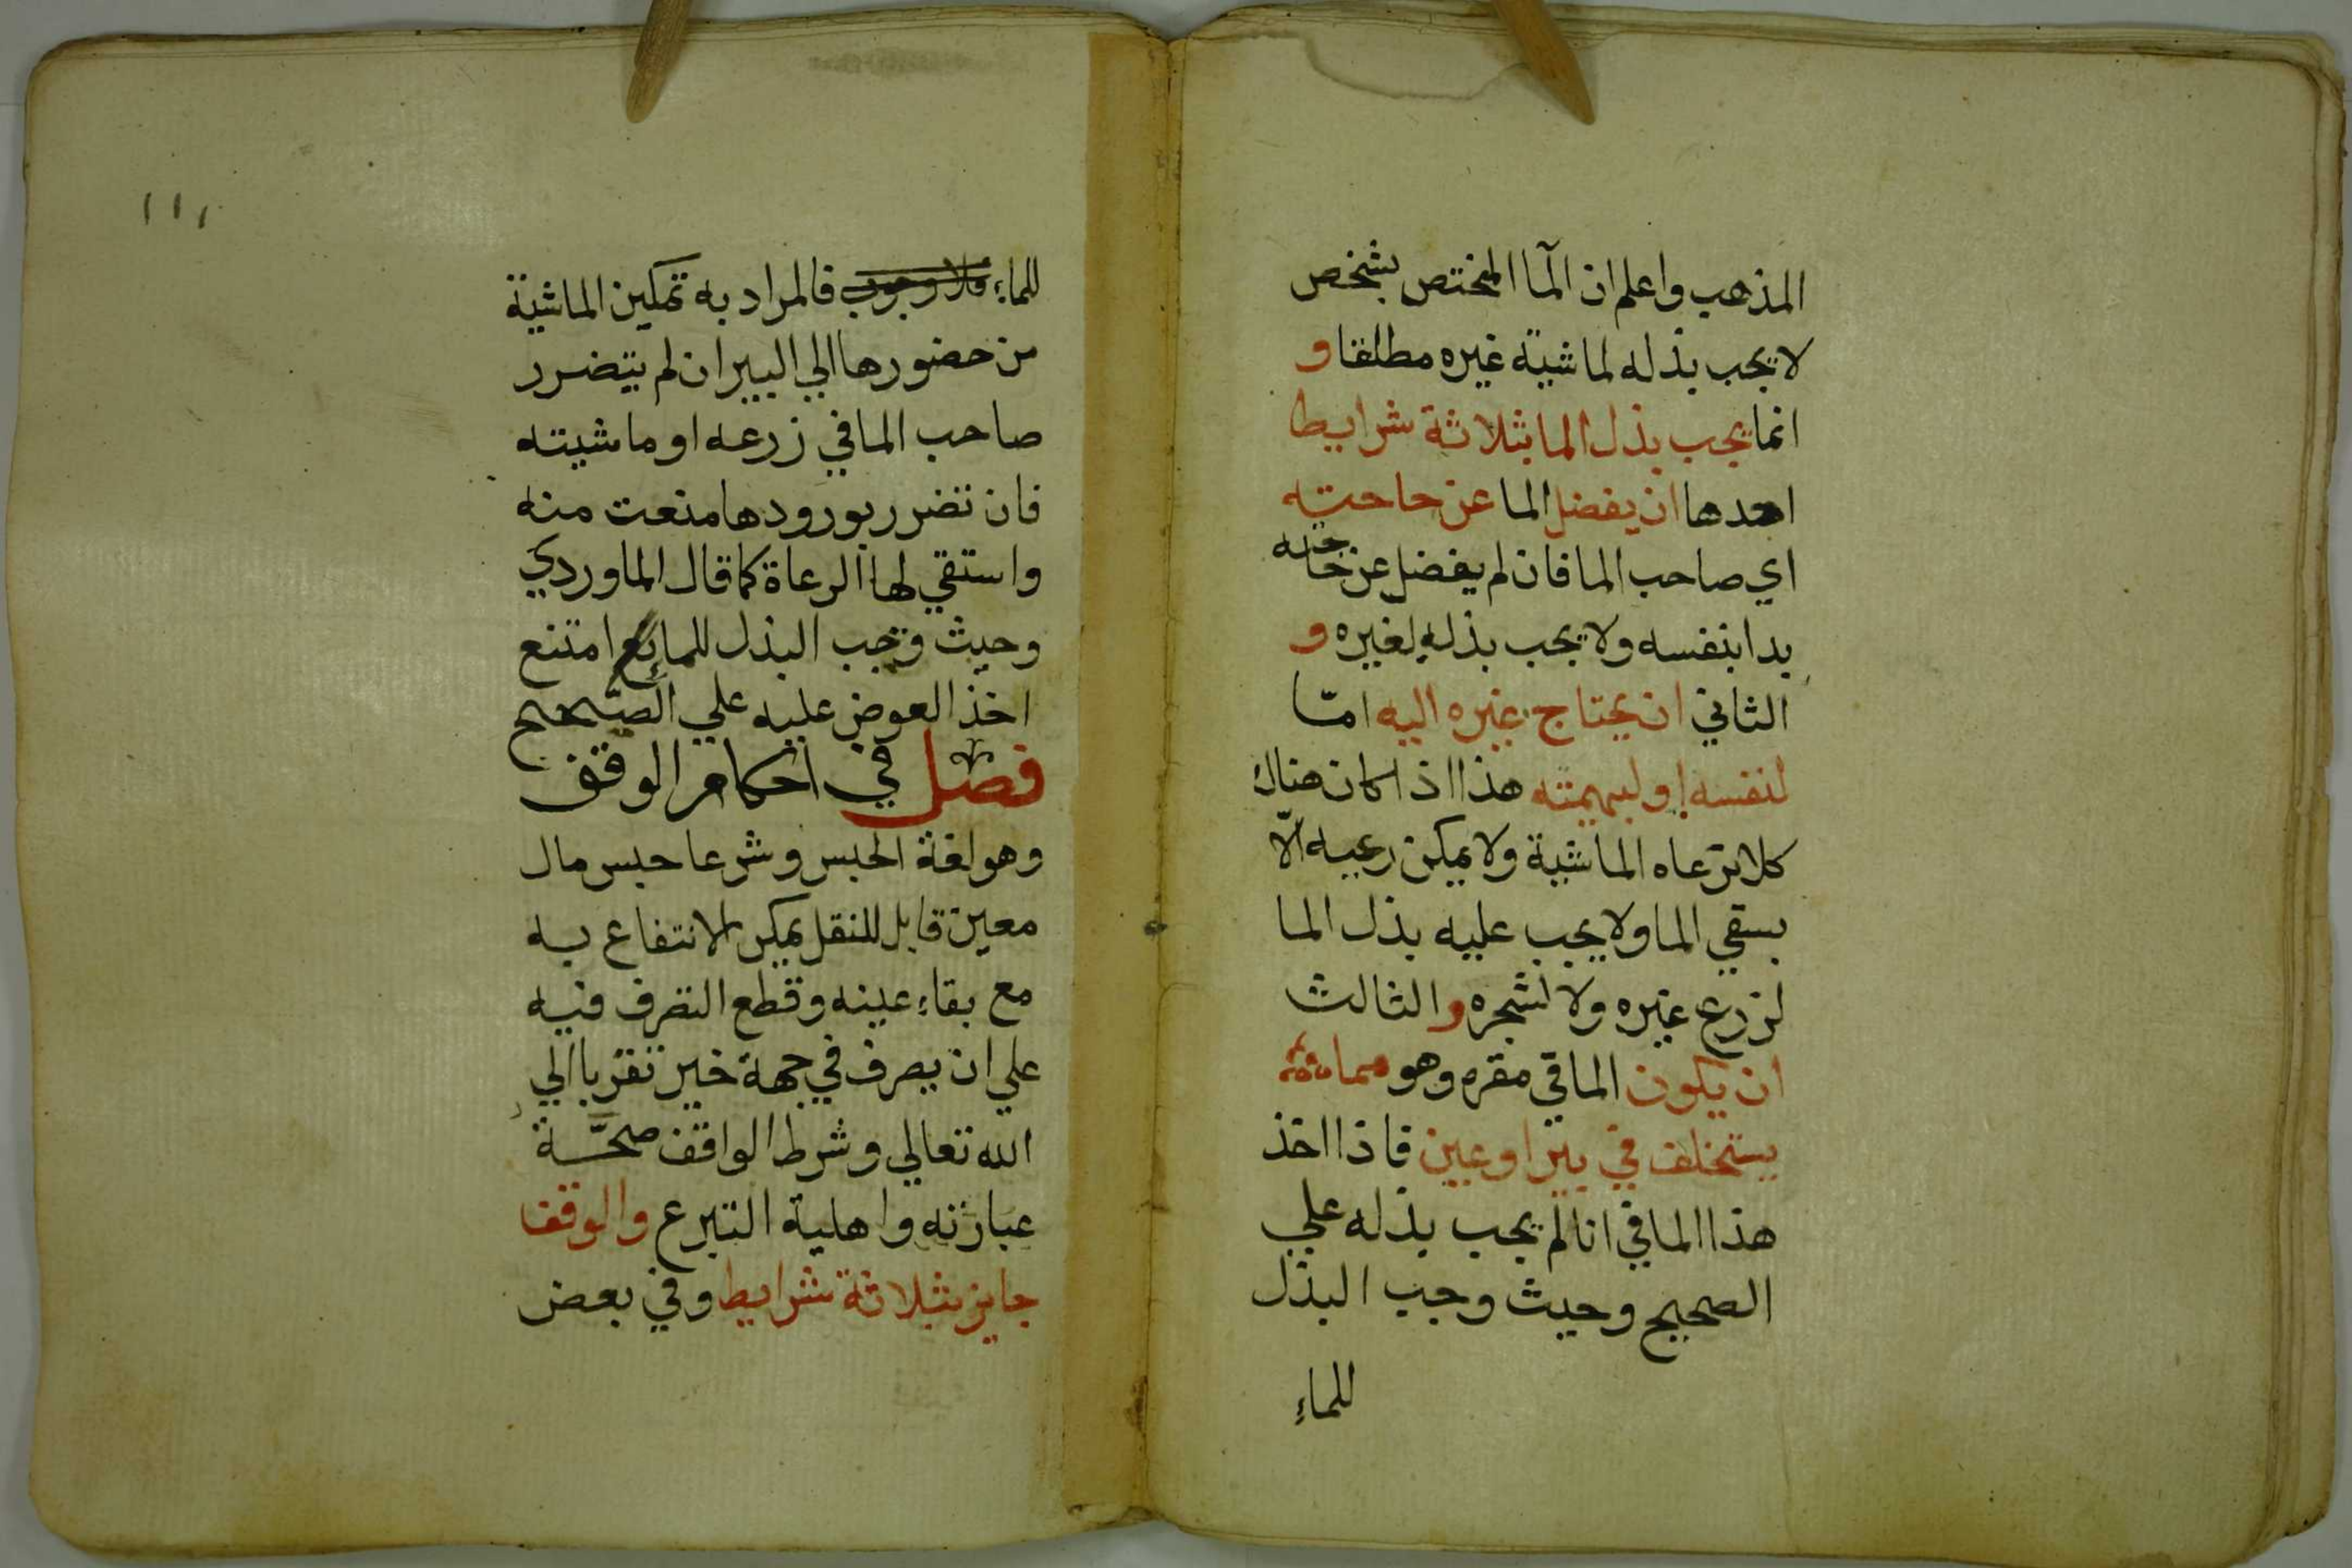 المذهب واعلم ان الما المختص بشخص
لا يجب بذله لماشية غيره مطلقا و
انما يجب بذل الما بثلاثة شرايط
احدها ان يفضل الما عن حاجته
اي صاحب الما فان لم يفضل عن حاجته
بدا بنفسه ولا يجب بذله لغيره و
الثاني ان يحتاج غيره اليه امّا
لنفسه او لبهيمته هذا اذا كان هناك
كلا ترعاه الماشية ولا يمكن رعيه الّا
بسقي الما ولا يجب عليه بذل الما
لزرع غيره ولا لشجره والثالث
ان يكون الما في مقره وهو مما
يستخلف في بير او عين فاذا اخذ
هذا الما في انا لم يجب بذله علي
الصحيح وحيث وجب البذل
للماء
١١١
للماء فلا وجوب فالمراد به تمكين الماشية
من حضورها الي البير ان لم يتضرر
صاحب الما في زرعه او ماشيته
فان تضرر بورودها منعت منه
واستقي لها الرعاة كما قال الماوردي
وحيث وجب البذل للماء امتنع
اخذ العوض عليه علي الصحيح
فصل في احكام الوقف
وهو لغة الحبس وشرعا حبس مال
معين قابل للنقل يمكن الانتفاع به
مع بقاء عينه وقطع التصرف فيه
علي ان يصرف في جهة خير تقربا الي
الله تعالي وشرط الواقف صحّة
عبارته واهلية التبرع والوقف
جايز بثلاثة شرايط وفي بعض